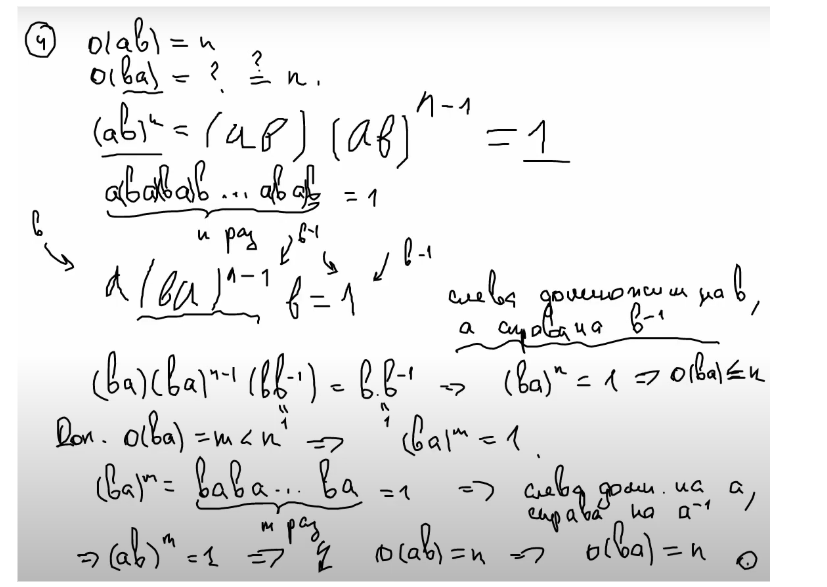 ④ o(ab) = n
o(ba) = ? ≟ n.
(ab)ⁿ = (ab) (ab)ⁿ⁻¹ = 1
ababab ... abab = 1
n раз
b b⁻¹ b⁻¹
a(ba)ⁿ⁻¹ b = 1
слева домножим на b,
а справа на b⁻¹
(ba)(ba)ⁿ⁻¹(bb⁻¹) = b.b⁻¹ => (ba)ⁿ = 1 => o(ba) ≤ n
1 1
Доп. o(ba) = m < n => (ba)ᵐ = 1.
(ba)ᵐ = baba... ba = 1 => слева домн. на a,
m раз справа на a⁻¹
=> (ab)ᵐ = 1 => o(ab) = n => o(ba) = n